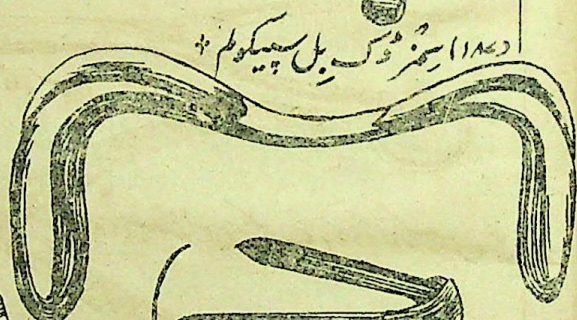 (۱۸۷) سِمْز ڈک بِل سپیکولم *